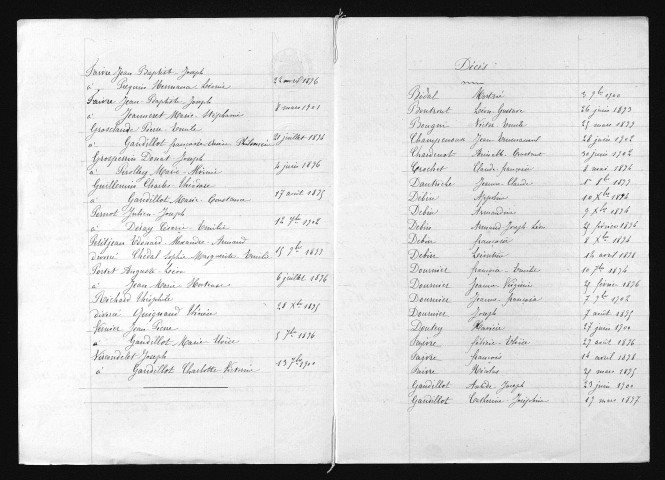 Faivre Jean Baptiste Joseph
à Hermana Léonie 24 avril 1896
Faivre Jean Baptiste Joseph
à Jeannest Marie Stéphanie 8 mars 1901
Groschaude Pierre Emile
à Gaudillot Françoise Marie Philomène 21 juillet 1894
Grosperrin Donat Joseph
à Marie Noémie 4 juin 1896
Guillemin Charles Théodore
à Gaudillot Marie Constance 17 août 1895
Pernot Julien Joseph
à Deray Lucie Emilie 12 7bre 1902
Petitjean Edouard Alexandre Armand
divorcé Vhedal Sophie Marguerite Emilie 15 9bre 1899
Postet Auguste Léon
à Jean Marie Hortense 6 juillet 1896
Richard Théophile
divorcé Guignand Irénée 28 Xbre 1895
Vernier Jean Pierre
à Gaudillot Marie Eloïse 5 7bre 1896
Verandet Joseph
à Gaudillot Charlotte Victorine 13 7bre 1900
Décès
Bédat 2 7bre 1900
Boutront Léon Gustave 26 juin 1893
Bougni Victor Emile 25 mars 1899
Champenoux Jean Emmanuel 28 juin 1902
Chardenot Constant 30 juin 1902
Crochet Claude François 8 mai 1896
Dantriche Jeanne Claude 1er 8bre 1899
Debin 10 Xbre 1894
Debin Armandine 9 Xbre 1894
Debin Armand Joseph Léon 21 février 1896
Debin Françoise 8 Xbre 1894
Debin Léontine 14 avril 1898
Dournier François Emile 10 7bre 1894
Dournier Jeanne Virginie 21 février 1896
Dournier Jeanne Françoise 7 7bre 1902
Dournier Joseph 7 août 1895
Doutry 27 juin 1900
Faivre Félicie Eloïse 27 août 1896
Faivre François 14 avril 1898
Faivre Nicolas 21 mars 1895
Gaudillot Joseph 23 juin 1900
Gaudillot Catherine Joséphine 17 mars 1897